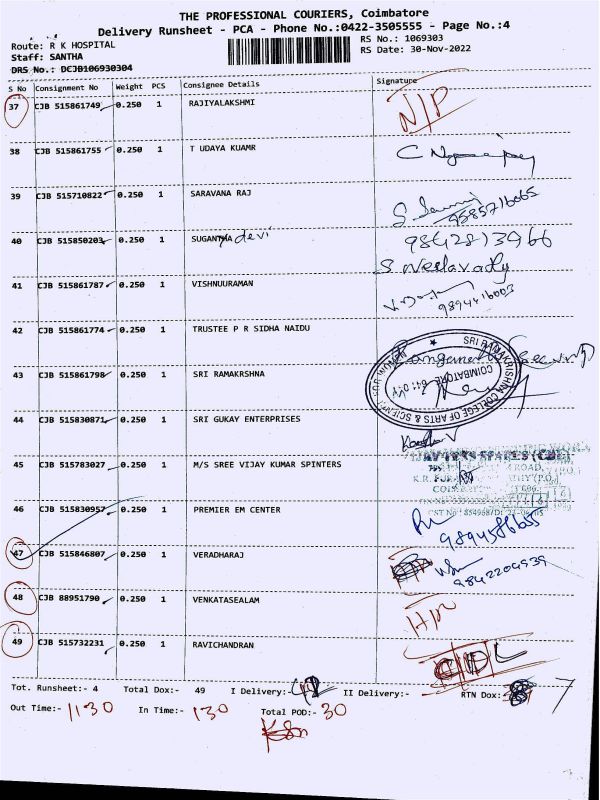 THE PROFESSIONAL COURIERS, Coimbatore
Delivery Runsheet - PCA - Phone No.:0422-3505555 - Page No.:4
Route: R K HOSPITAL
RS No.: 1069303
Staff: SANTHA
RS Date: 30-Nov-2022
DRS No.: DCJB106930304
S No Consignment No Weight PCS Consignee Details Signature
37 CJB 515861749 0.250 1 RAJIYALAKSHMI N/P
38 CJB 515861755 0.250 1 T UDAYA KUAMR
39 CJB 515710822 0.250 1 SARAVANA RAJ
9585716065
40 CJB 515850203 0.250 1 SUGANTHA devi 9842813966
41 CJB 515861787 0.250 1 VISHNUURAMAN
9894416003
42 CJB 515861774 0.250 1 TRUSTEE P R SIDHA NAIDU
43 CJB 515861798 0.250 1 SRI RAMAKRSHNA
SRI RAMAKRISHNA COLLEGE OF ARTS & SCIENCE FOR WOMEN
COIMBATORE
44 CJB 515830871 0.250 1 SRI GUKAY ENTERPRISES
45 CJB 515783027 0.250 1 M/S SREE VIJAY KUMAR SPINTERS
46 CJB 515830957 0.250 1 PREMIER EM CENTER
47 CJB 515846807 0.250 1 VERADHARAJ
9842204939
48 CJB 88951790 0.250 1 VENKATASEALAM
49 CJB 515732231 0.250 1 RAVICHANDRAN
Tot. Runsheet:- 4 Total Dox:- 49 I Delivery:- II Delivery:- RTN Dox:- 7
Out Time:- 1130 In Time:- 130 Total POD:- 30